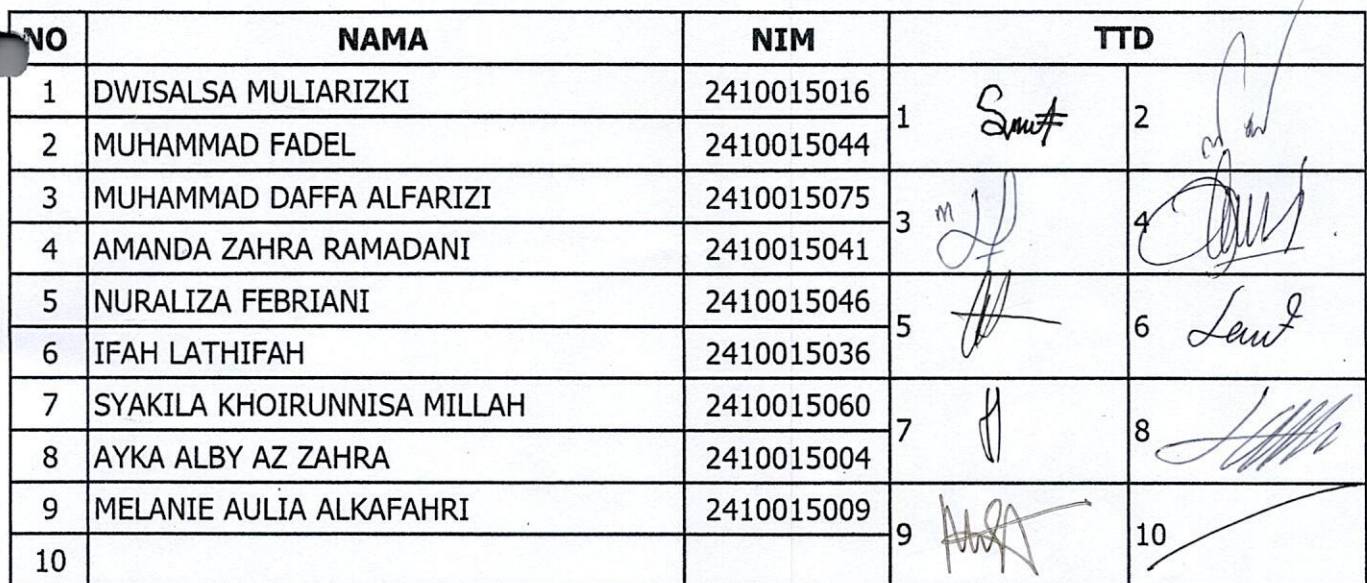 NO NAMA NIM TTD
1 DWISALSA MULIARIZKI 2410015016 1 2
2 MUHAMMAD FADEL 2410015044
3 MUHAMMAD DAFFA ALFARIZI 2410015075 3 4
4 AMANDA ZAHRA RAMADANI 2410015041
5 NURALIZA FEBRIANI 2410015046 5 6
6 IFAH LATHIFAH 2410015036
7 SYAKILA KHOIRUNNISA MILLAH 2410015060 7 8
8 AYKA ALBY AZ ZAHRA 2410015004
9 MELANIE AULIA ALKAFAHRI 2410015009 9 10
10